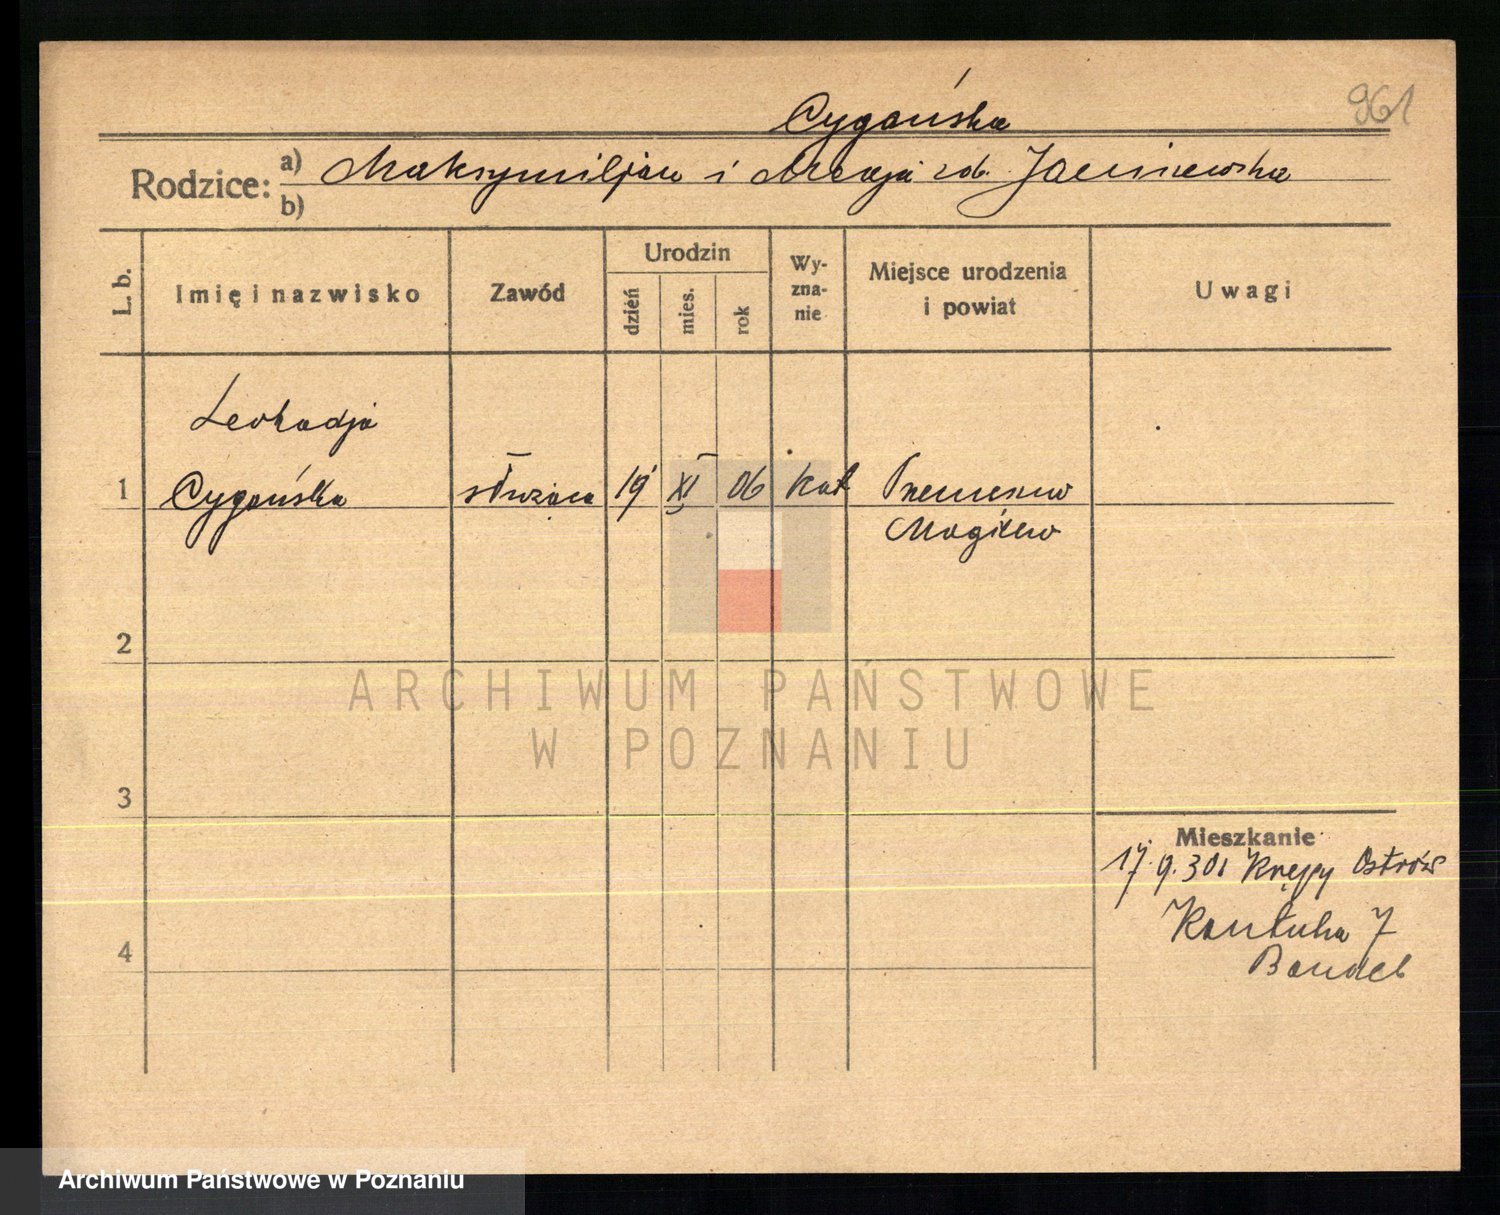 961
Cygańska
Rodzice: a) Maksymiljan i Marja zd. Janiszewska
b)
L. b. Imię i nazwisko Zawód Urodzin dzień mies. rok Wy-zna-nie Miejsce urodzenia i powiat Uwagi
Leokadja
1 Cygańska służąca 19 XI 06 kat Trzemeszno
Mogilno
2
ARCHIWUM PAŃSTWOWE
W POZNANIU
3
Mieszkanie
17.9.30 Krępy Ostrów
4
Archiwum Państwowe w Poznaniu